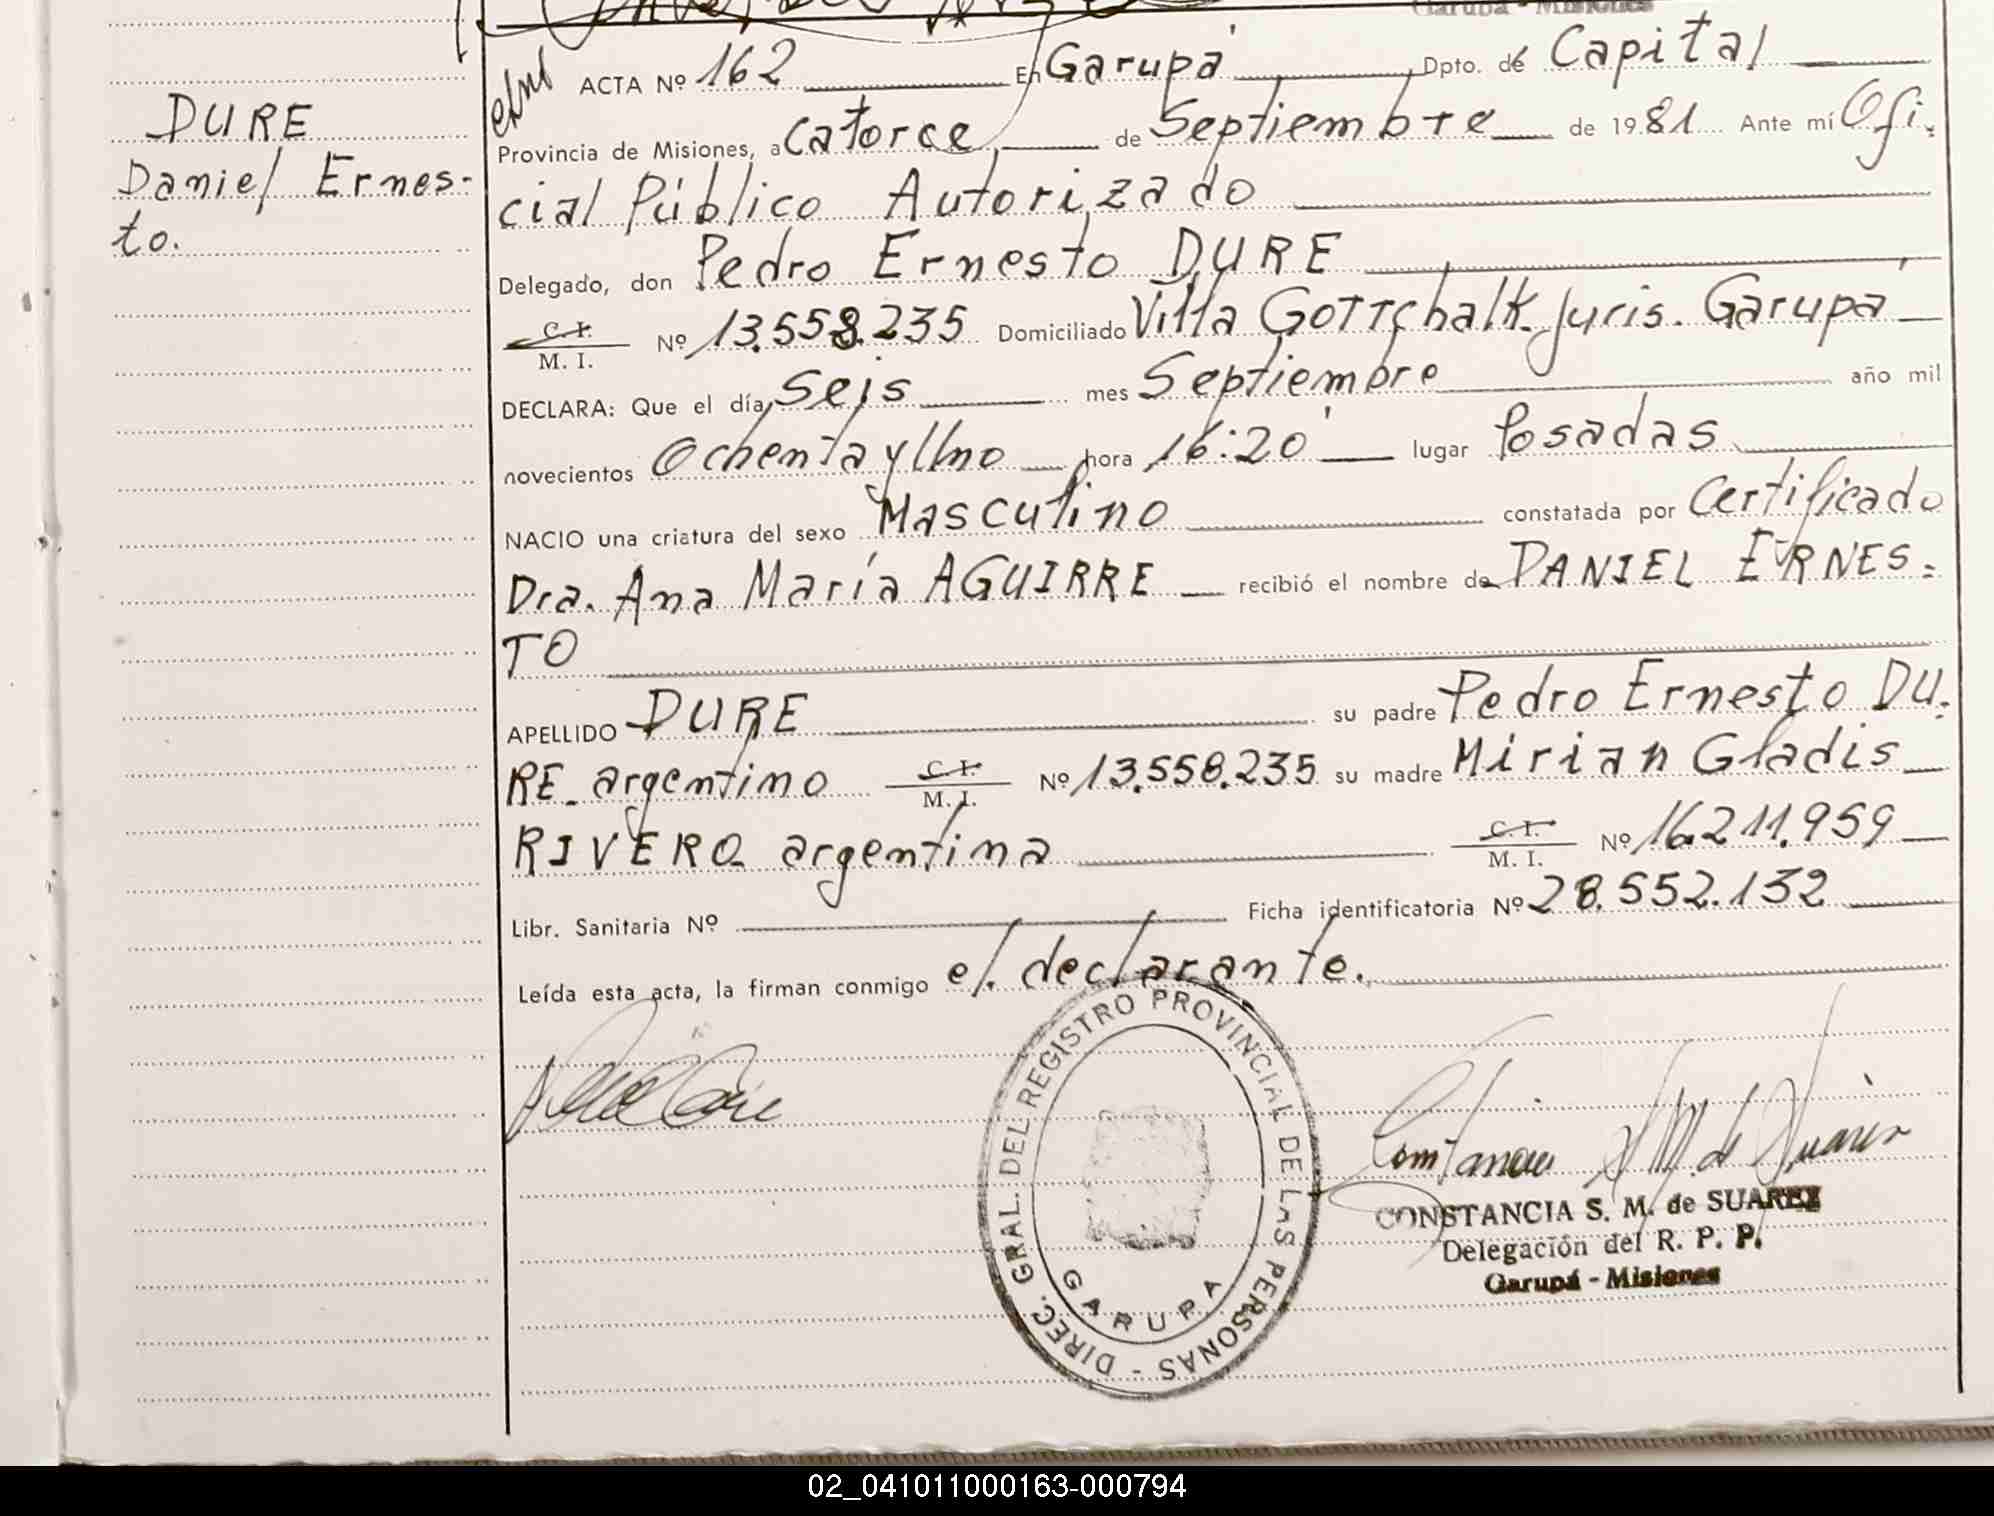 Garupá - Misiones
DURE
Daniel Ernes-
to.
ACTA Nº 162 En Garupá Dpto. de Capital
Provincia de Misiones, a Catorce, de Septiembre de 1981 Ante mí Ofi-
cial Público Autorizado
Delegado, don Pedro Ernesto DURE
C. I.
M. I. Nº 13.558.235 Domiciliado Villa Gottschalk. Juris. Garupá
DECLARA: Que el día, Seis mes Septiembre año mil
novecientos Ochenta y Uno hora 16:20' lugar Posadas
NACIO una criatura del sexo Masculino constatada por Certificado
Dra. Ana María AGUIRRE recibió el nombre de DANIEL ERNES=
TO
APELLIDO DURE su padre Pedro Ernesto DU-
RE_ argentino C. I. M. I. Nº 13.558.235 su madre Mirian Gladis
RIVERO_ argentina C. I. M. I. Nº 16.211.959
Libr. Sanitaria Nº Ficha identificatoria Nº 28.552.132
Leída esta acta, la firman conmigo el. declarante.
DIREC. GRAL. DEL REGISTRO PROVINCIAL DE LAS PERSONAS -
GARUPA
Constancia S M. de Suarez
CONSTANCIA S. M. de SUAREZ
Delegación del R. P. P.
Garupá - Misiones
02_041011000163-000794